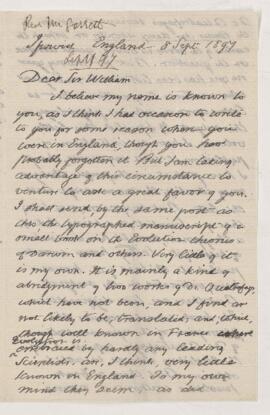 Rev M. Jarrett
Ipswich England 8 Sept 1897
Sept/97
Dear Sir William
I believe my name is known to
you, as I think I had occasion to write
to you for some reason when you
were in England, though you have
probably forgotten it. But I am taking
advantage of this circumstance to
venture to ask a great favor of you.
I shall send, by the same post as
this the typographed manuscript of a
small book on the Evolution theories
of Darwin and others. Very little of it
is my own. It is mainly a kind of
abridgment of two works of Dr. Quatrefages
which have not been, and I find are
not likely to be, translated, and which,
though well known in France where
Evolution is
embraced by hardly any leading
Scientists, are, I think, very little
known in England. To my own
mind they seem as